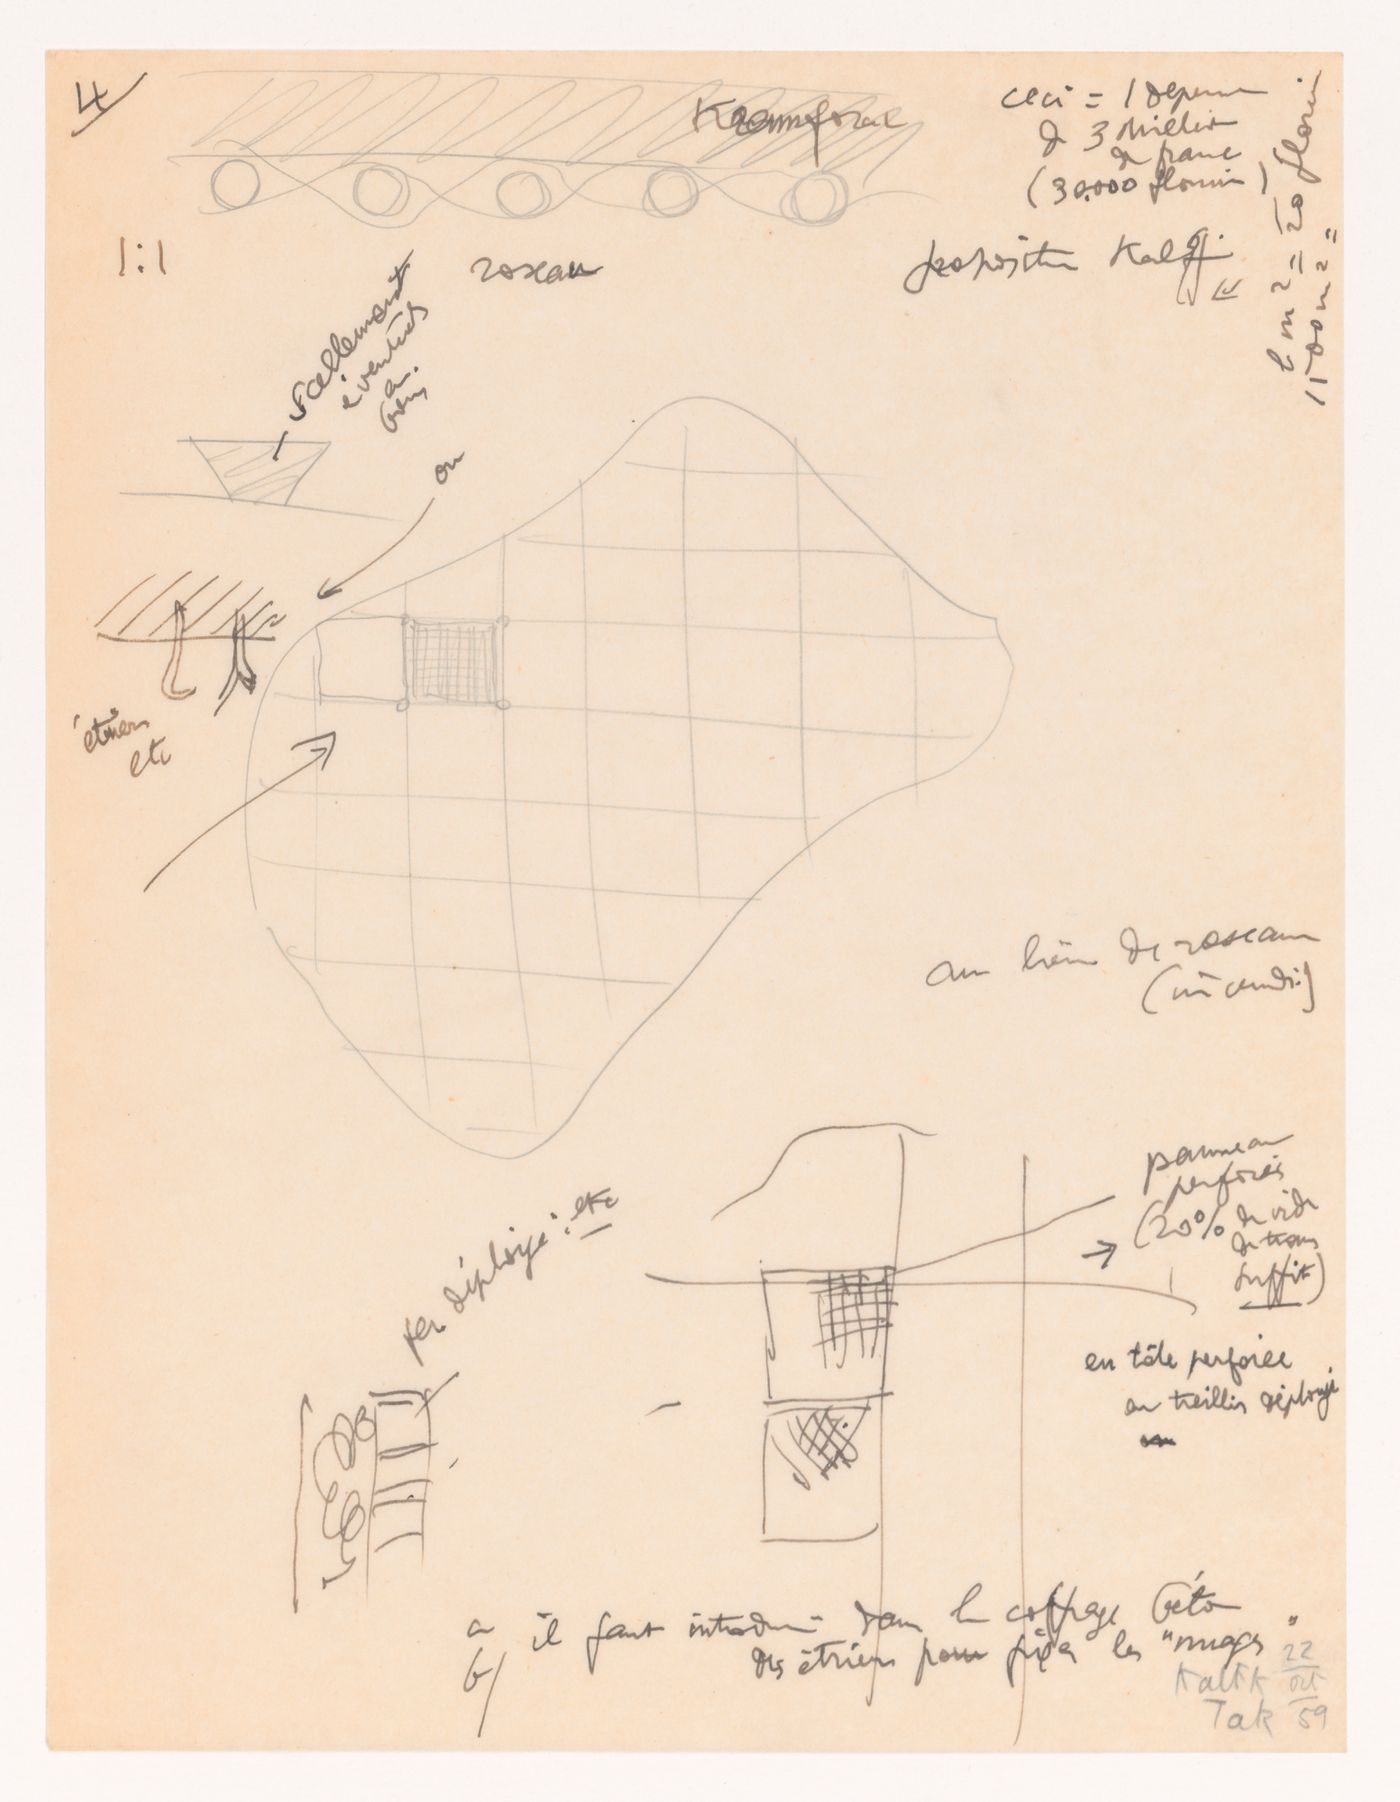 4
ceci = 1 depense
de 3 million
de franc
(30.000 florin)
1 m2 = 20 florin
1500 m2 =
1:1
roseau
proposition Kalff
scellement
éventuel
en
bois
ou
étriers
etc
au lieu de roseau
(incendie)
panneau
perforés
(20% de vide
de trous
suffit)
fer déployé: etc
en tôle perforée
ou treillis déployé
a
b/ il faut introduire dans le coffrage béton
des étriers pour fixer les "nuages"
22
oct
59
Kalff
Tak